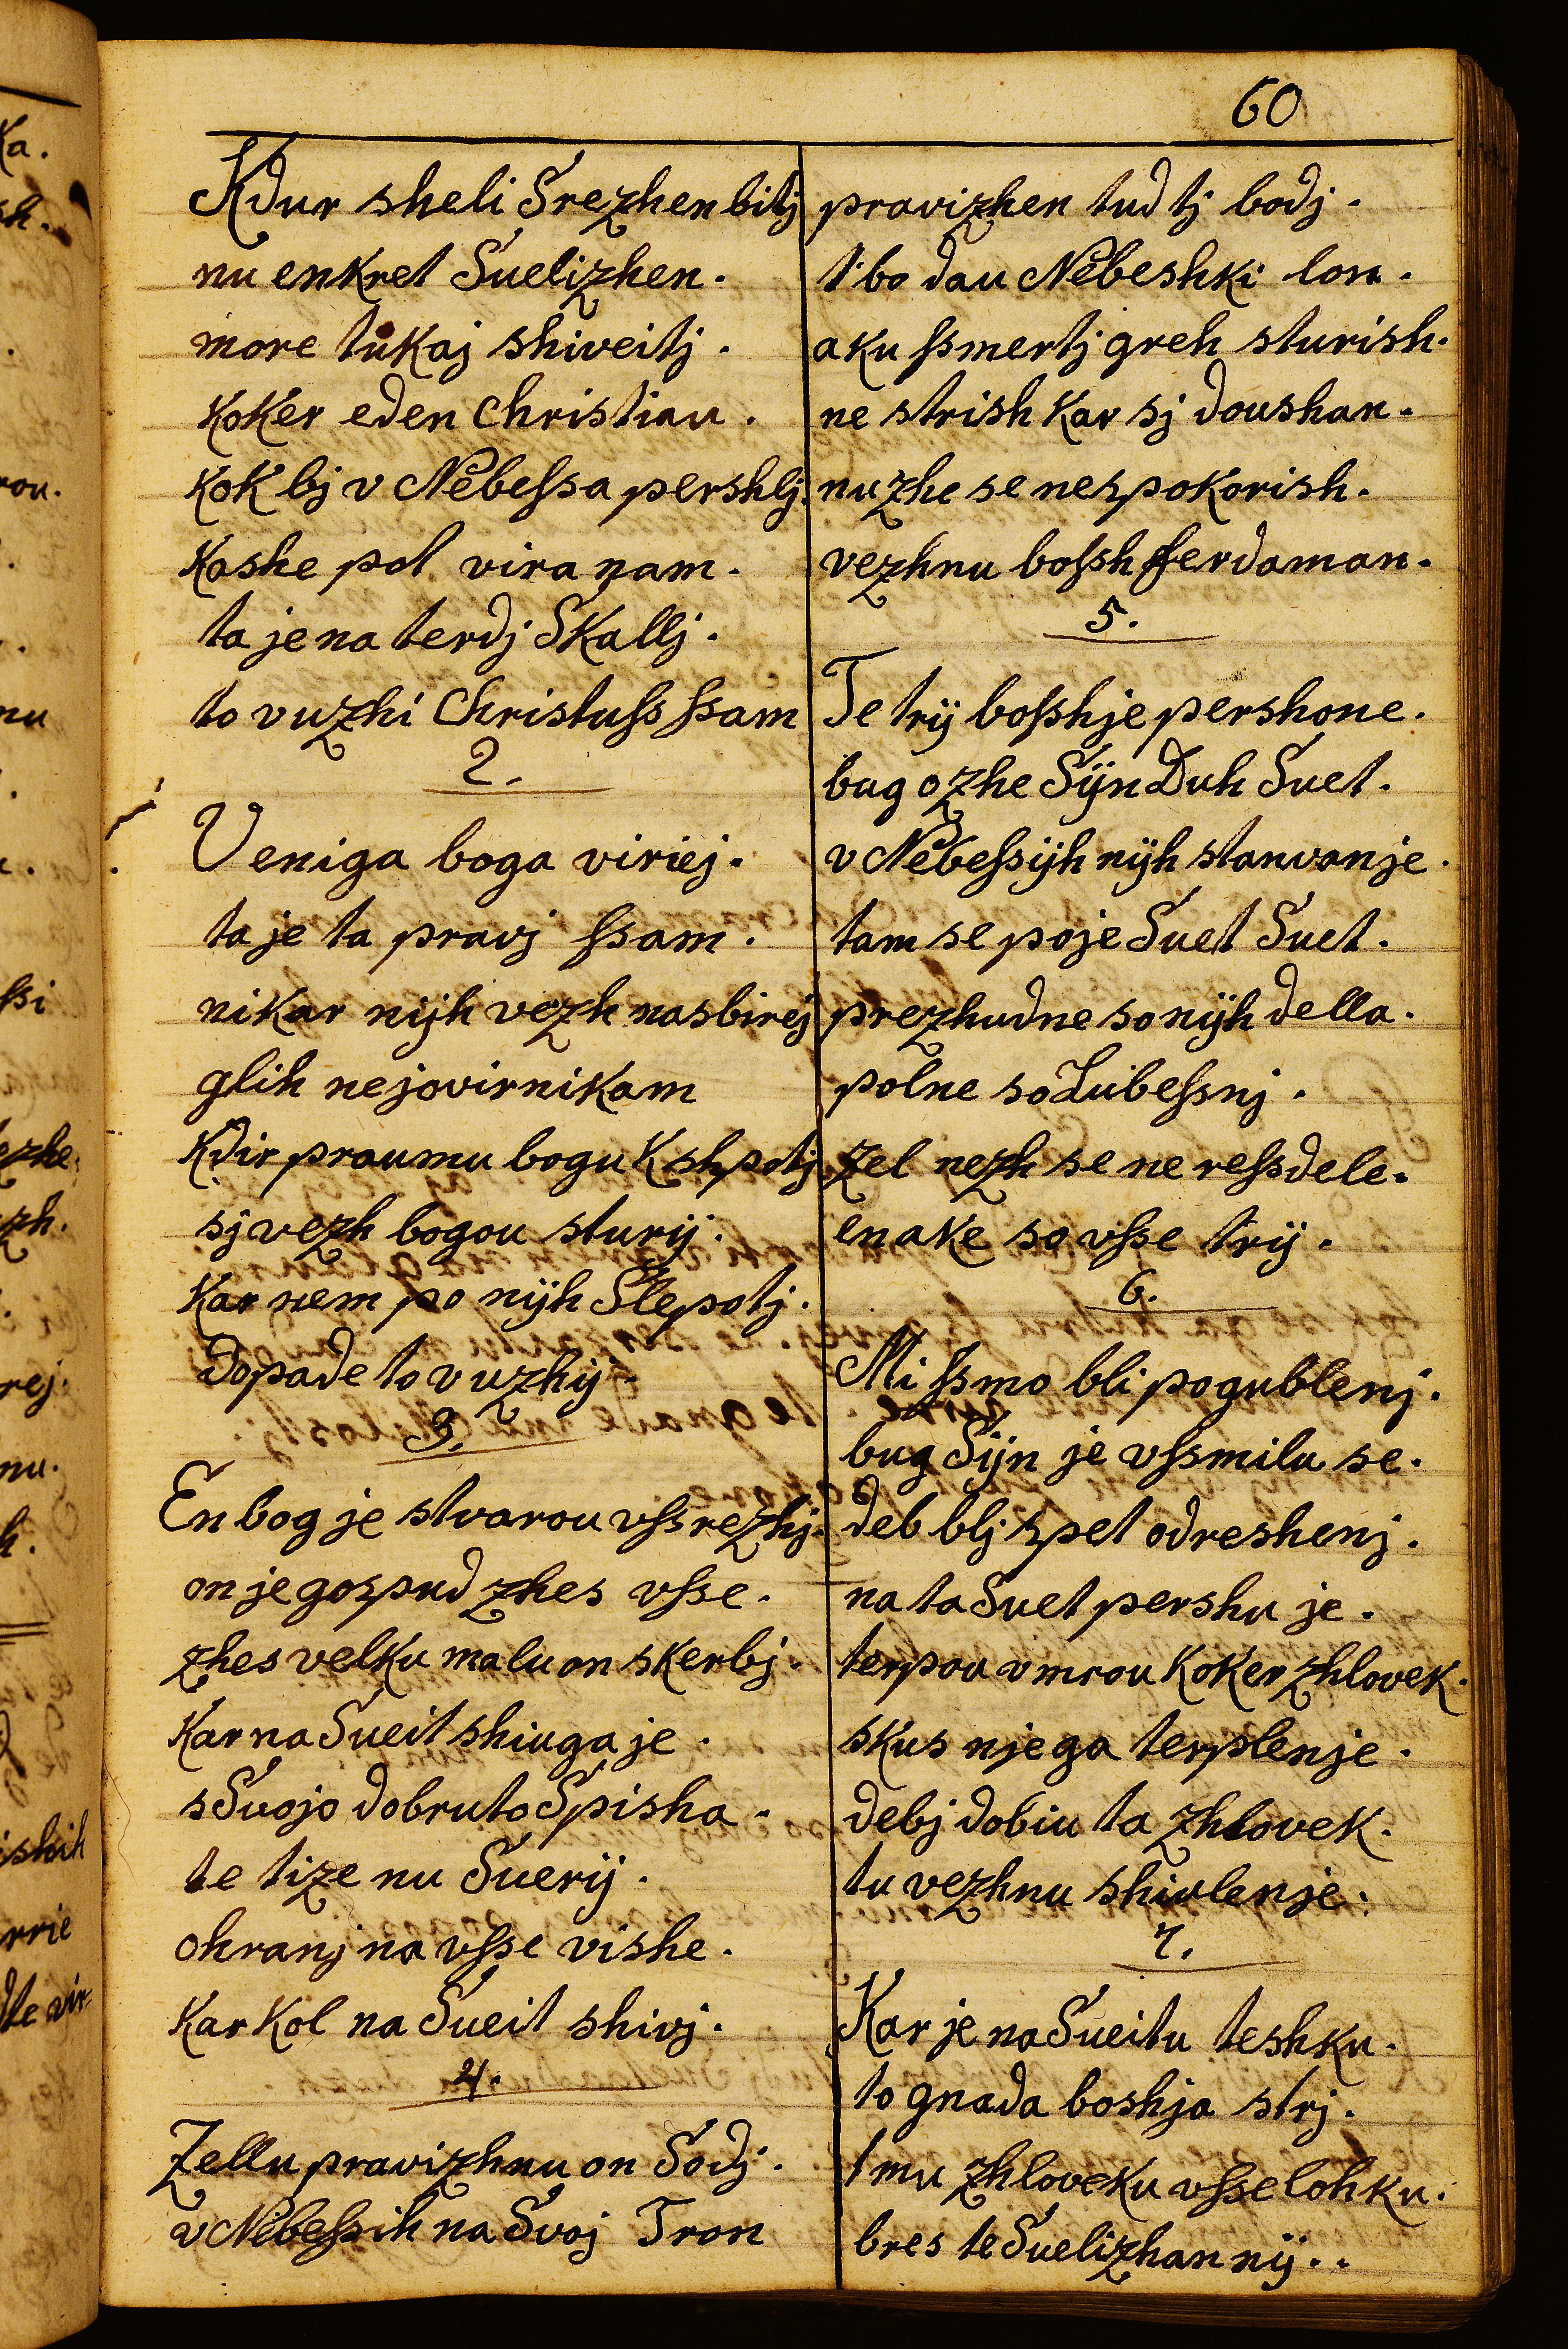 60
Kdur sheli Srezhen bitj
nu enkret Suelizhen.
more tukaj shiveitj.
Koker eden Christian.
Kok bj v Nebeſsa pershlj.
Kashe pot vira nam.
ta je na terdj Skallj.
to vuzhi Christuſs ſsam
2.
Veniga boga viriej.
ta je ta pravj ſsam.
nikar nijh vezh nasbirej
glih nejovirnikam
Kdir praumu bogu K shpotj
sj vezh bogou sturij.
Kar nem po nijh Slepotj.
dopade to vuzhij.
3.
En bog je stvarou vſs rezhj.
on je gospud zhes vſse.
zhes velku malu on skerbj.
Kar na Sueit shiuga je.
s Svojo dobruto Spisha.
te tize nu Suerij.
ohranj na vſse vishe.
Kar Kol na Sueit shivj.
4.
Zellu pravizhnu on Sodj.
v Nebeſsih na Svoj Tron
pravizhen tud tj bodj.
t bo dau Nebeshki lon.
aku ſsmertj greh sturish.
ne strish Kar sj doushan.
nu zhe se nespokorish.
vezhnu boſsh ferdaman.
5.
Te trij boſshje pershone.
bug ozhe Sijn Duh Suet.
v Nebeſsijh nijh stanvanje.
tam se poje Suet Suet.
prezhudne so nijh della.
polne so Lubeſsnj.
Zel nezh se ne reſsdele.
enake so vſse trij.
6.
Mi ſsmo bli pogublenj.
bug Sijn je vſsmilu se.
deb blj spet odreshenj.
na ta Suet pershu je.
terpou vmrou Koker zhlovek.
skus njega terplenje.
debj dobiu ta zhlovek.
tu vezhnu shivlenje.
7.
Kar je na Sueitu teshku.
to gnada boshja strj.
tmu zhloveku vſse lohku.
bres te Suelizhan nij..